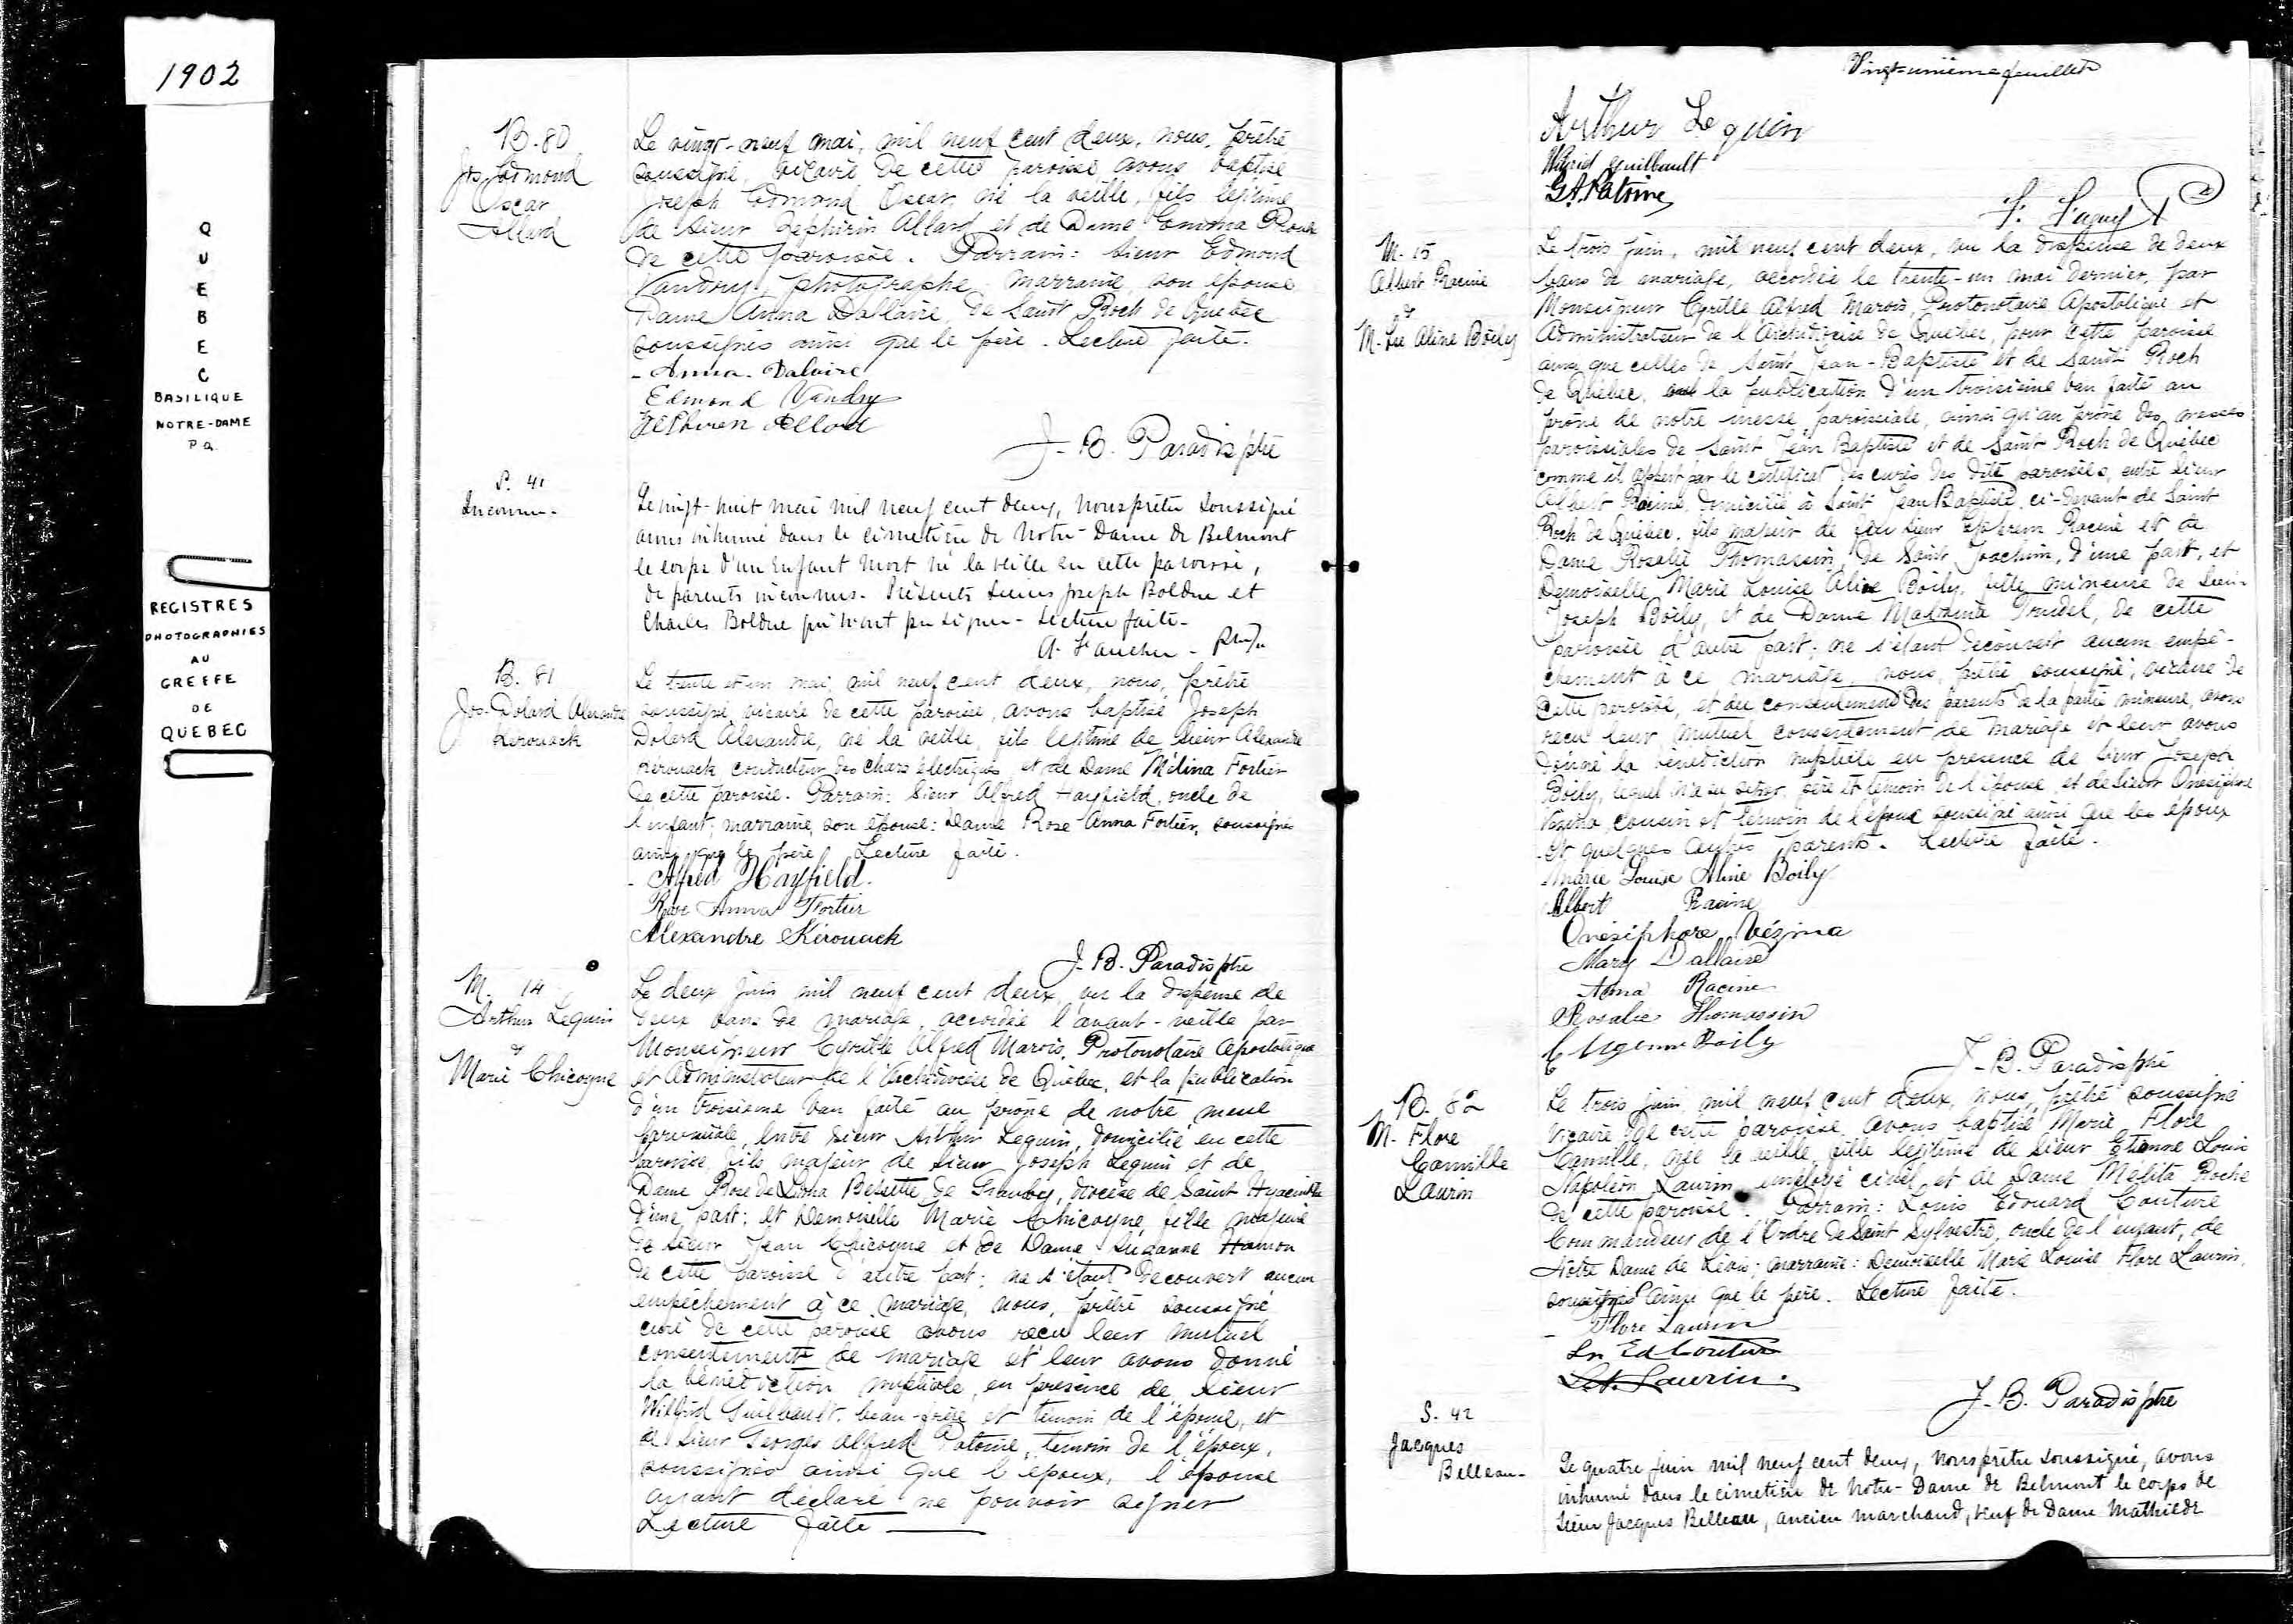 1902
QUEBEC
BASILIQUE
NOTRE-DAME
P.Q.
REGISTRES
PHOTOGRAPHIES
AU
GREFFE
DE
QUEBEC
B. 80
Jos. Edmond
Oscar
Allard
Le vingt-neuf mai, mil neuf cent deux, nous, prêtre
soussigné, vicaire de cette paroisse avons baptisé
Joseph Edmond Oscar, né la veille, fils légitime
de sieur Zéphirin Allard et de Dame Emma
de cette paroisse. Parrain: sieur Edmond
Vandry, photographe, marraine, son épouse
Dame Anna Dallaire, de Saint Roch de Québec
soussignés ainsi que le père. Lecture faite.
- Anna Dalaire
Edmond Vandry
Allard
J-B. Paradis ptre
S. 41
Inconnu-
Le vingt-huit mai mil neuf cent deux, nous prêtre soussigné
avons inhumé dans le cimetière de Notre-Dame de Belmont
le corps d'un enfant mort né la veille en cette paroisse,
de parents inconnus- Présents sieurs Joseph Boldue et
Charles Boldue qui n'ont pu signer- Lecture faite-
A. Faucher - ptre
B. 81
Jos. Dolard Alexandre
Kerouack
Le trente et un mai, mil neuf cent deux, nous, prêtre
soussigné, vicaire de cette paroisse, avons baptisé Joseph
Dolard Alexandre, né la veille, fils légitime de sieur Alexandre
Kérouack, conducteur des chars électriques, et de Dame Mélina Fortier
de cette paroisse. Parrain: sieur Alfred Hayfield, oncle de
l'enfant; marraine, son épouse: Dame Rose Anna Fortier, soussignés
ainsi que le père. Lecture faite.
- Alfred Hayfield.
Rose Anna Fortier
Alexandre Kérouack
J-B. Paradis ptre
M. 14
Arthur Lequin
&
Marie Chicoyne
Le deux juin mil neuf cent deux, vu la dispense de
deux bans de mariage, accordée l'avant-veille par
Monseigneur Cyrille Alfred Marois, Protonotaire Apostolique
et Administrateur de l'Archidiocèse de Québec, et la publication
d'un troisième ban faite au prône de notre messe
paroissiale, entre sieur Arthur Lequin, domicilié en cette
paroisse, fils majeur de sieur Joseph Lequin et de
Dame Rose de Lima Bessette, de Granby, diocèse de Saint Hyacinthe
d'une part; et Demoiselle Marie Chicoyne, fille majeure
de sieur Jean Chicoyne et de Dame Suzanne Hamon
de cette paroisse d'autre part; ne s'étant découvert aucun
empêchement à ce mariage, nous, prêtre soussigné
curé de cette paroisse avons reçu leur mutuel
consentement de mariage et leur avons donné
la bénédiction nuptiale, en présence de sieur
Wilfrid Guilbault, beau-frère et témoin de l'épouse, et
de sieur Georges Alfred Patoine, témoin de l'époux,
soussignés ainsi que l'époux, l'épouse
ayant déclaré ne pouvoir signer
Lecture faite
Vingt-unième feuillet
Arthur Lequin
Wilfrid Guilbault
G.A. Patoine
M. 15
Albert Racine
&
M. Lse Aline Boily
Le trois juin, mil neuf cent deux, vu la dispense de deux
bans de mariage, accordée le trente-un mai dernier, par
Monseigneur Cyrille Alfred Marois, Protonotaire Apostolique et
Administrateur de l'Archidiocèse de Québec, pour cette paroisse
ainsi que celles de Saint Jean-Baptiste et de Saint Roch
de Québec, la publication d'un troisième ban faite au
prône de notre messe paroissiale, ainsi qu'au prône des messes
paroissiales de Saint Jean Baptiste et de Saint Roch de Québec
comme il appert par le certificat des curés des dites paroisses, entre sieur
Albert Racine, domicilié à Saint Jean Baptiste, ci-devant de Saint
Roch de Québec, fils majeur de feu sieur Ephrem Racine et de
Dame Rosalie Thomassin, de Saint Joachim, d'une part, et
Demoiselle Marie Louise Aline Boily, fille mineure de sieur
Joseph Boily, et de Dame Trudel, de cette
paroisse d'autre part; ne s'étant découvert aucun empê-
chement à ce mariage, nous, prêtre soussigné, vicaire de
cette paroisse, et du consentement des parents de la partie mineure, avons
reçu leur mutuel consentement de mariage et leur avons
donné la bénédiction nuptiale en présence de sieur Joseph
Boily, lequel n'a su signer, père et témoin de l'épouse, et de sieur Onésiphore
Vézina, cousin et témoin de l'époux soussigné ainsi que les époux
et quelques autres parents. Lecture faite.
Marie Louise Aline Boily
Albert Racine
Onésiphore Vézina
Mary Dallaire
Anna Racine
Rosalie Thomassin
Eugenie Boily
J-B. Paradis ptre
B. 82
M. Flore
Camille
Laurin
Le trois juin, mil neuf cent deux, nous, prêtre soussigné
vicaire de cette paroisse, avons baptisé Marie Flore
Camille, née la veille, fille légitime de sieur Etienne Louis
Napoléon Laurin, employé civil, et de Dame Mélita Roche
de cette paroisse. Parrain: Louis Edouard Couture
Commandeur de l'Ordre de Saint Sylvestre, oncle de l'enfant, de
Notre Dame de Lévis; marraine: Demoiselle Marie Louise Flore Laurin,
soussignés ainsi que le père. Lecture faite.
- Flore Laurin
Ls Ed Couture
Laurin.
J-B. Paradis ptre
S. 42
Jacques
Belleau-
Le quatre juin mil neuf cent deux, nous prêtre soussigné, avons
inhumé dans le cimetière de Notre-Dame de Belmont le corps de
sieur Jacques Belleau, ancien marchand, veuf de Dame Mathilde